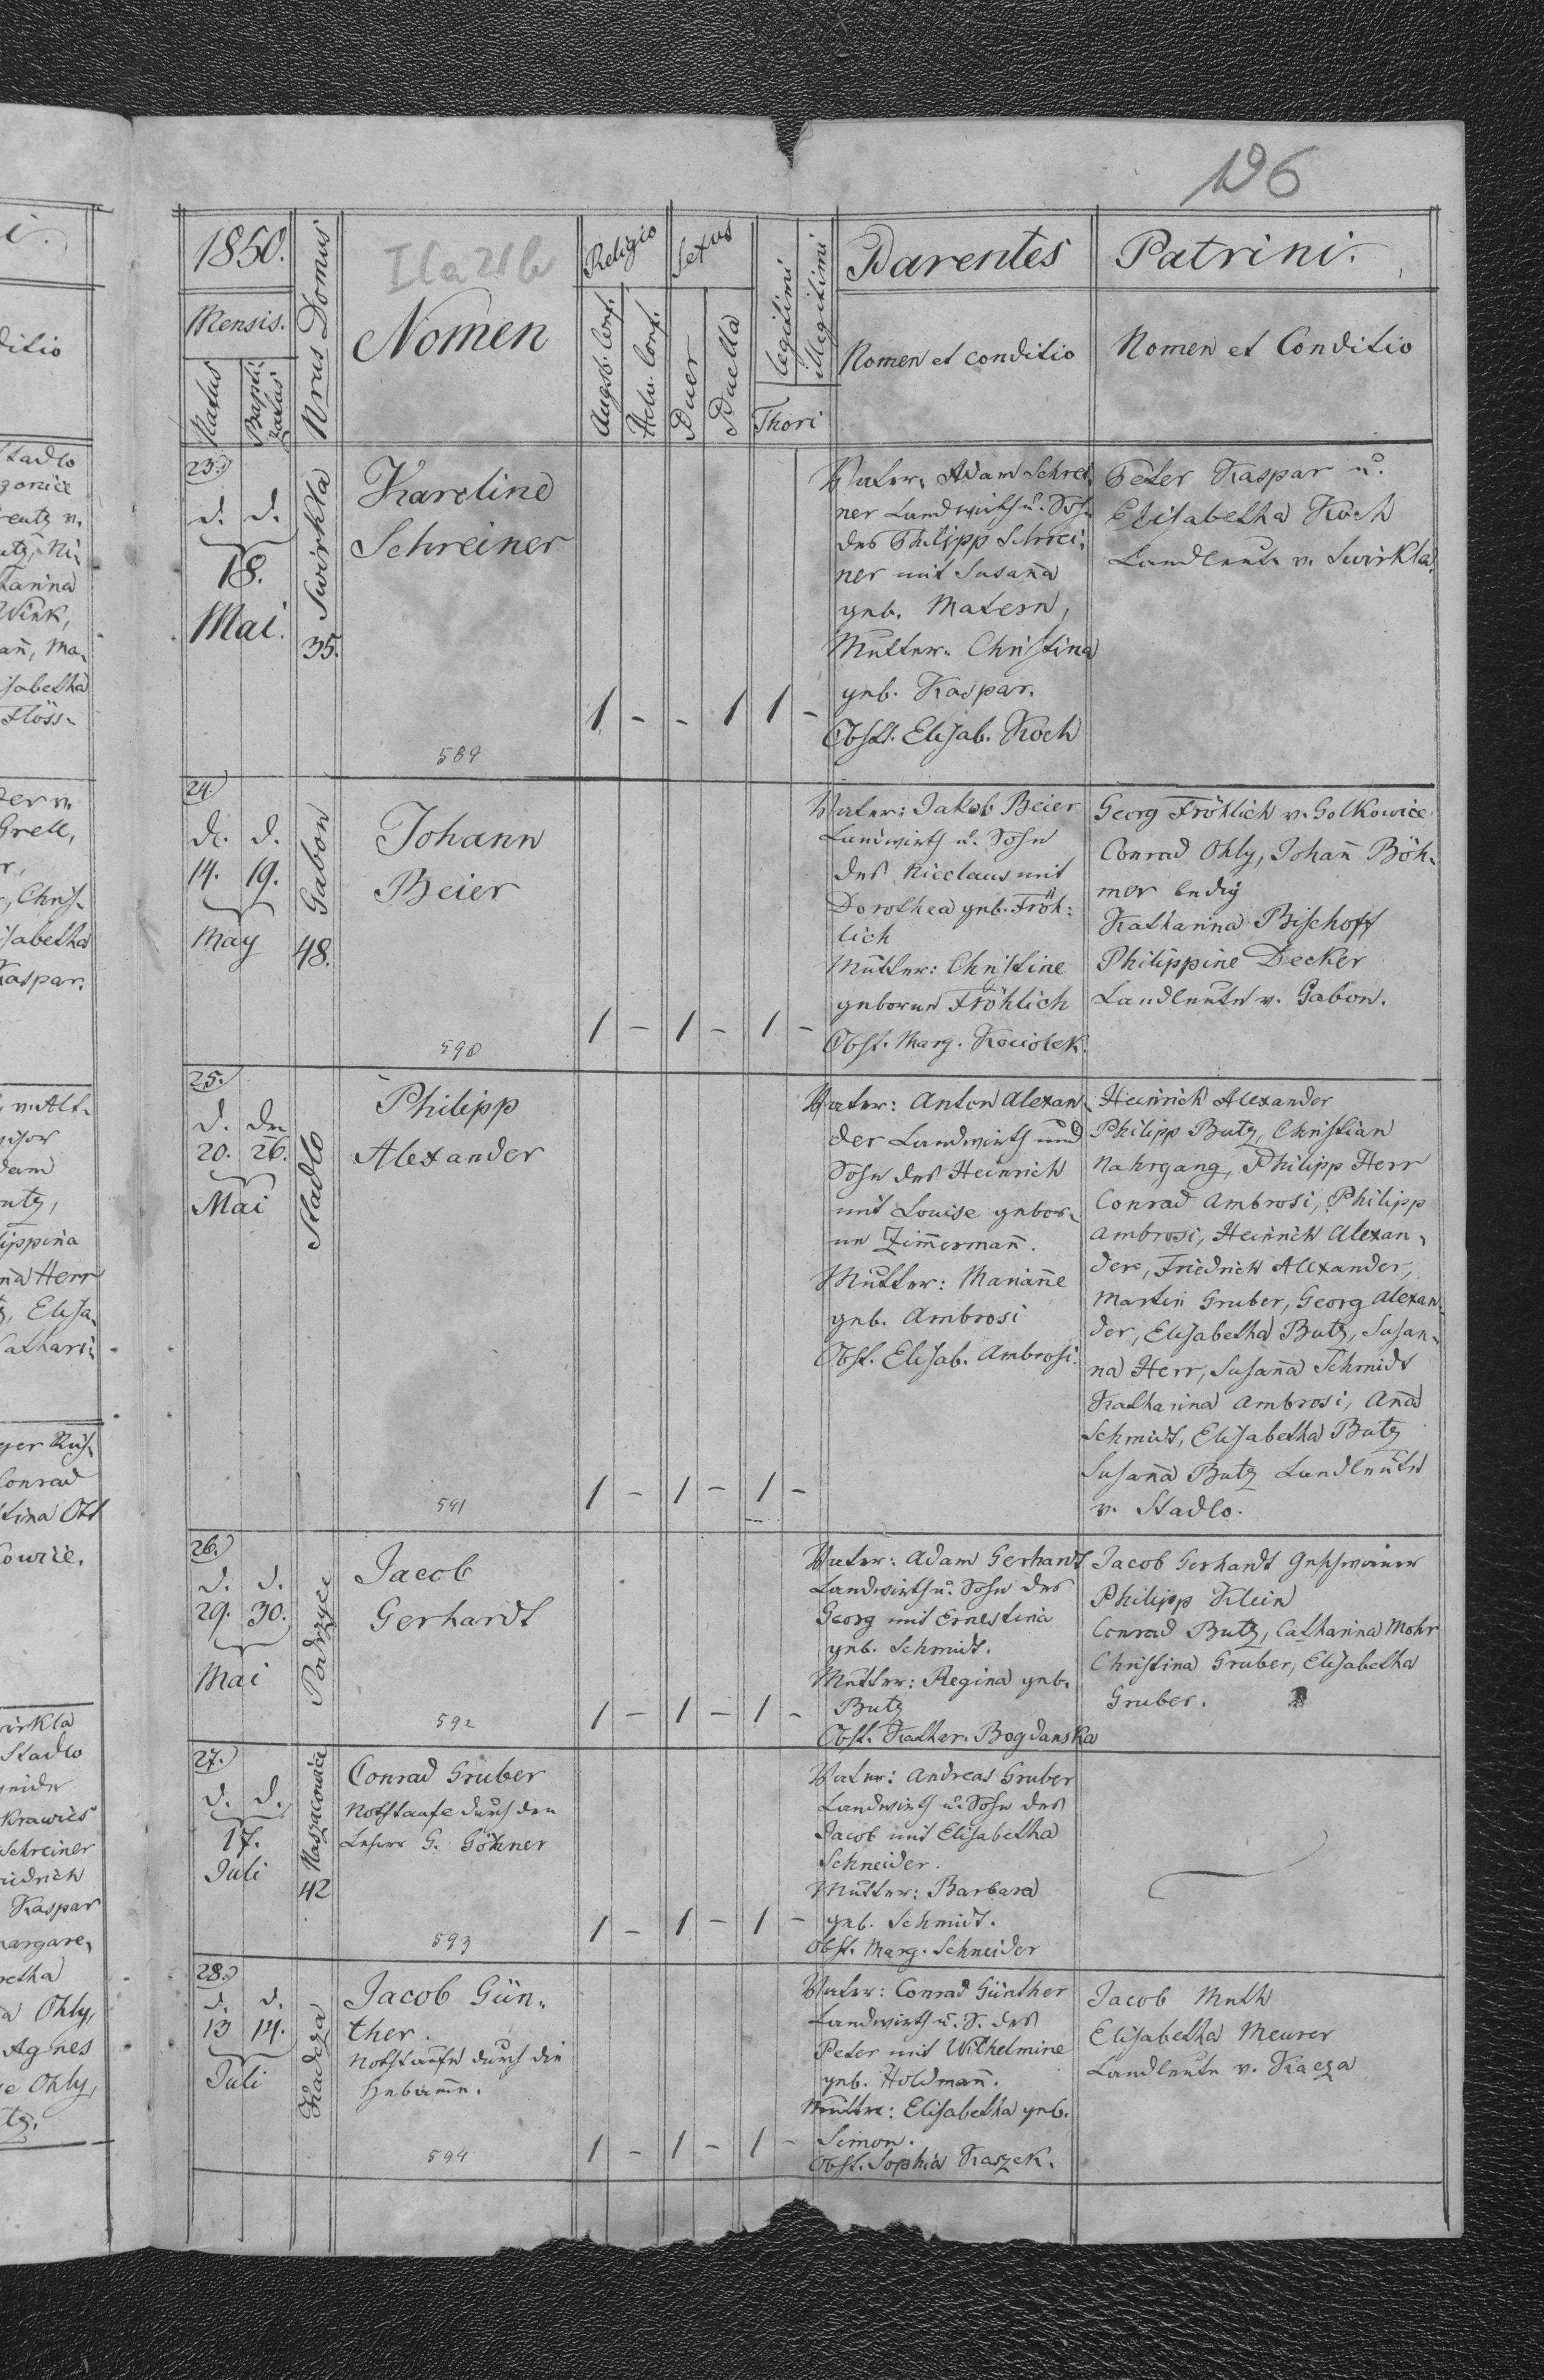 196
1850.
Mensis.
Natus
Baptizatus
Nrus Domus
IIa 21b
Nomen
Religio
Augsb. Conf.
Helv. Conf.
Sexus
Puer
Puella
legitimi
illegitimi
Thori
Parentes
Nomen et conditio
Patrini.
Nomen et Conditio
23.
d. d.
18.
Mai.
Swirkla
35.
Karoline
Schreiner
589
1 - - 1 1 -
Vater: Adam Schrei
ner Landwirth u. Sohn
des Philipp Schrei,
ner mit Susaña
geb. Matern,
Mutter: Christina
geb. Kaspar.
Obst. Elisab. Koch
Peter Kaspar u.
Elisabetha Koch
Landleute v. Swirkla.
24.
d. d.
14. 19.
May
Gabon
48.
Johann
Beier
590
1 - 1 - 1 -
Vater: Jakob Beier
Landwirth u. Sohn
des Nicolaus mit
Dorothea geb. Fröh:
lich
Mutter: Christine
geborne Fröhlich
Obst. Marg. Kociolek.
Georg Fröhlich v. Golkowice
Conrad Ohly, Johañ Böh-
mer ledig
Katharina Bischoff
Philippine Decker
Landleute v. Gabon.
25.
d. den
20. 26.
Mai
Stadlo
Philipp
Alexander
591
1 - 1 - 1 -
Vater: Anton Alexan-
der Landwirth und
Sohn des Heinrich
mit Louise gebor-
ne Zim̃ermañ.
Mutter: Mariañe
geb. Ambrosi
Obst. Elisab. Ambrosi.
Heinrich Alexander
Philipp Butz, Christian
Nahrgang, Philipp Herr
Conrad Ambrosi, Philipp
Ambrosi, Heinrich Alexan-
der, Friedrich Alexander,
Martin Gruber, Georg Alexan-
der, Elisabetha Butz, Susan-
na Herr, Susaña Schmidt
Katharina Ambrosi, Aña
Schmidt, Elisabetha Butz
Susaña Butz Landleute
v. Stadlo.
26.
d. d.
29. 30.
Mai
Podrzyce
Jacob
Gerhardt
592
1 - 1 - 1 -
Vater: Adam Gerhardt
Landwirth u. Sohn des
Georg mit Ernestina
geb. Schmidt.
Mutter: Regina geb.
Butz
Obst. Kathar. Bogdanska
Jacob Gerhardt Geschworner
Philipp Klein
Conrad Butz, Catharina Mohr
Christina Gruber, Elisabetha
Gruber.
27.
d. d.
17.
Juli
Naszacowice
42
Conrad Gruber
Nothtaufe durch den
Lehrer G. Göhner
593
1 - 1 - 1 -
Vater: Andreas Gruber
Landwirth u. Sohn des
Jacob mit Elisabetha
Schneider.
Mutter: Barbara
geb. Schmidt.
Obst. Marg. Schneider
28.
d. d.
13 14.
Juli
Kadcza
Jacob Gün-
ther.
Nothtaufe durch die
Hebam̃e.
594
1 - 1 - 1 -
Vater: Conrad Günther
Landwirth u. S. des
Peter mit Wilhelmine
geb. Holdmañ.
Mutter: Elisabetha geb.
Simon.
Obst. Sophia Kaszek.
Jacob Muth
Elisabetha Meurer
Landleute v. Kacza